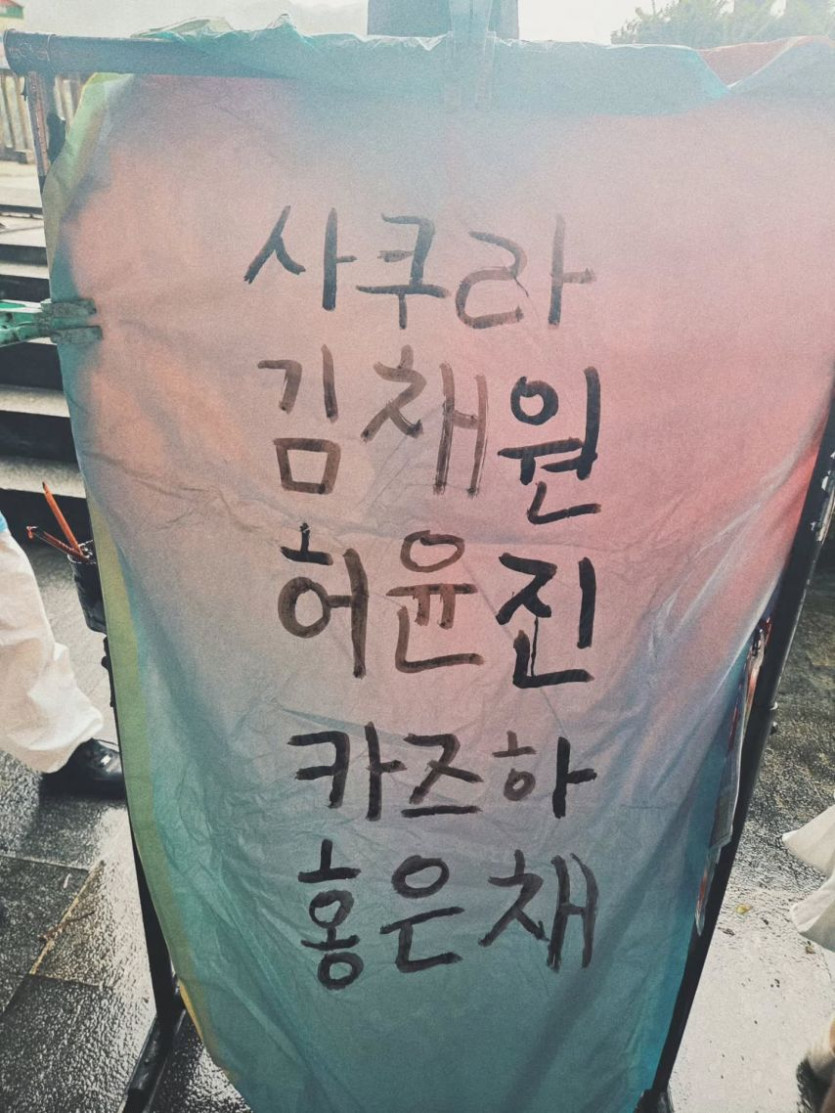 사쿠라
김채원
허윤진
카즈하
홍은채